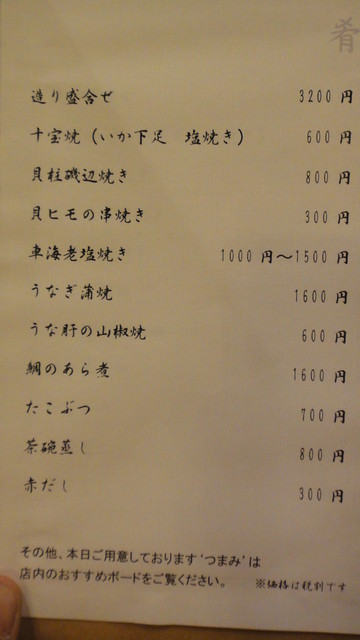 肴
造り盛合せ 3200円
十宝焼(いか下足 塩焼き) 600円
貝柱磯辺焼き 800円
貝ヒモの串焼き 300円
車海老塩焼き 1000円～1500円
うなぎ蒲焼 1600円
うな肝の山椒焼 600円
鯛のあら煮 1600円
たこぶつ 700円
茶碗蒸し 800円
赤だし 300円
その他、本日ご用意しております‘つまみ’は
店内のおすすめボードをご覧ください。 ※価格は税別です